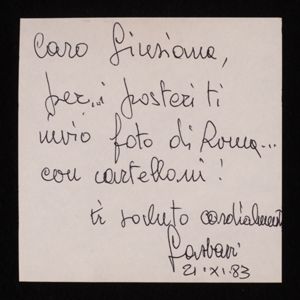 Caro Giuziana,
per..i posteri ti
invio foto di Roma...
con cartelloni!
ti saluto cordialmente
21.XI.83